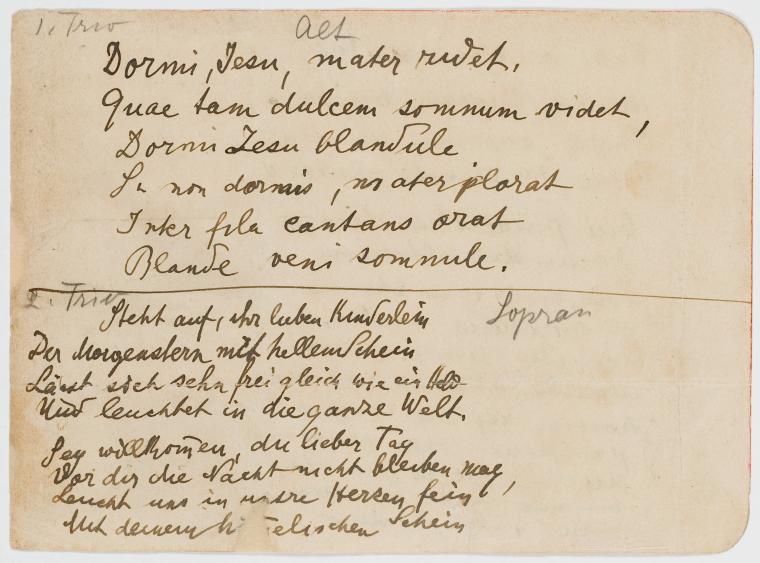 1. Trio Alt
Dormi, Jesu, mater ridet,
Quae tam dulcem somnum videt,
Dormi Jesu blandule
Si non dormis, mater plorat
Inter fila cantans orat
Blande veni somnule.
2. Trio Sopran
Steht auf, ihr lieben Kinderlein
Der Morgenstern mit hellem Schein
Lässt sich sehn frei gleich wie ein Held
Und leuchtet in die ganze Welt.
Sey willkom̄en, du lieber Tag
Vor dir die Nacht nicht bleiben mag,
Leucht uns in unsre Herzen fein
Mit deinem Schein